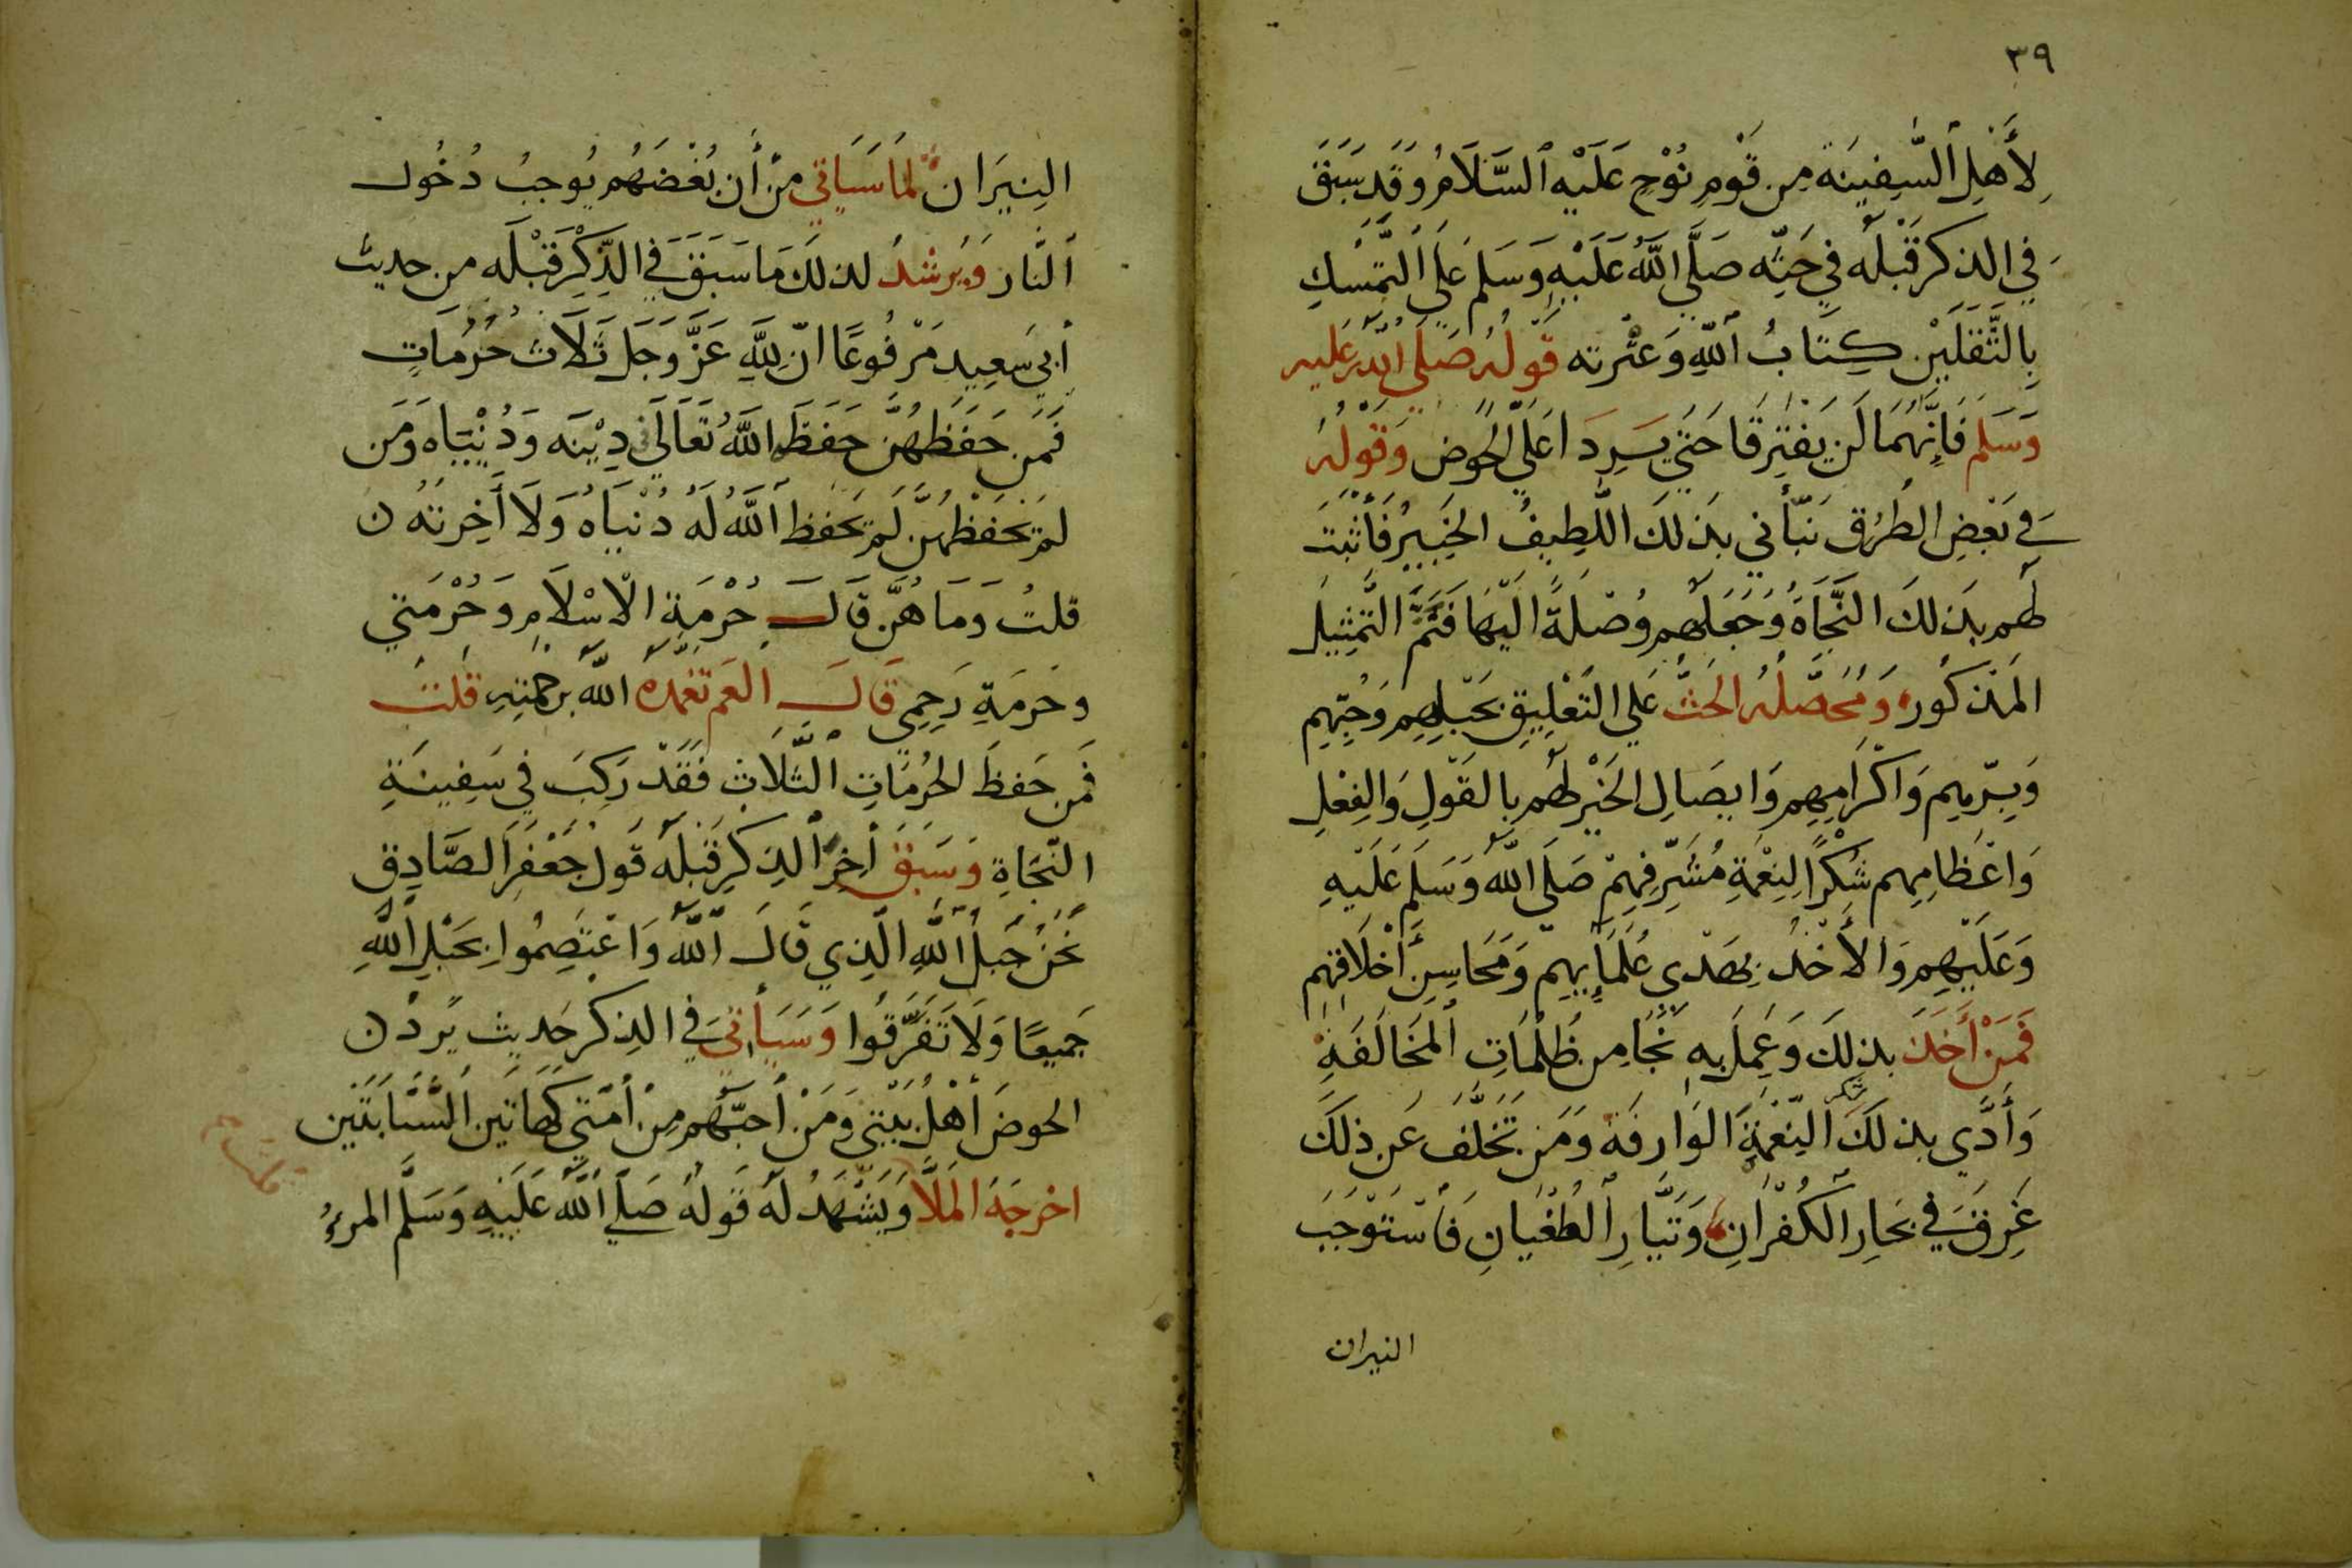 ٣٩
لِأَهْلِ ٱلسَّفِينَة مِن قَوْمِ نُوْحٍ عَلَيْهِ ٱلسَّلَامُ وَقَد سَبَقَ
فِي الذكر قَبْلَه فِي حَثِّه صَلَّى اللَّهُ عَلَيْهِ وَسَلم عَلَى التَّمسُّكِ
بِالثَّقَلَيْنِ كِتَابُ ٱللَّهِ وَعتْرته قَولُه صَلَى اللَّه عَليه
وَسَلم فَإِنَّهُمَا لَن يَفْتَرِقَا حَتَى يَرِدَا عَلَى الْحَوض وَقَوْلُه
فِي بَعْضِ الطُرُق نَبَّأَني بذلكَ اللَّطِيفُ الْخَبِيرُ فَأَثْبَتَ
لَهُم بذلكَ النَّجَاةَ وَجَعَلَهُم وُصْلَةً الَيْهَا فَتَمَّ التَّمْثِيلُ
المَذكُور وَمُحَصَّلُه الحَثُّ عَلي التَعْلِيقِ بحَبْلِهِم وَحُبِّهِم
وَبِرِّهِم وَاكْرَامِهِم وَايصَالِ الخَيْرِ لَهُم بالقَوْلِ وَالفِعْلِ
وَاعْظَامِهِم شُكْرًا لِنِعْمَةِ مُشَرِّفِهِمْ صَلَى اللَّهُ وَسَلَم عَلَيْهِ
وَعَلَيْهِم وَالأَخْذُ بِهَدْي عُلَمَائِهِم وَمَحَاسِنِ أَخْلَاقِهِم
فَمَنْ أَخَذَ بذلِكَ وَعَمِلَ بِهِ نَجَا مِن ظُلُمَاتِ ٱلمُخَالَفَةِ
وَأَدَّي بذلكَ شكر النِّعْمَةِ الوَارفَة وَمَن تَخَلَّفَ عَن ذلكَ
غَرِقَ فِي بحَارِ الكُفْرَانِ وَتَيَّارِ ٱلطُغْيَانِ فَأسْتَوْجَبَ
النيران
النِيرَان لمَا سَيَاتي مِنْ أَن بُغْضَهُم يُوجبُ دُخُول
ٱلنَّار وَيُرشدُ لذلكَ مَا سَبَقَ فِي الذِّكْرِ قَبْلَه من حديث
أَبِي سَعِيدٍ مَرْفُوعًا انّ لِلَّهِ عَزَّ وَجَلَ ثَلَاثَ حُرُمَاتٍ
فَمَن حَفَظَهُنَّ حَفَظَ اللَّهُ تَعَالَى دِيْنَه وَدُنْيَاه وَمَن
لَمْ يَحْفَظْهُنَّ لَمْ يَحفَظ ٱللَّهُ لَهُ دُنْيَاهُ وَلَا أَخِرتَهُ ن
قلتُ وَمَا هُنَّ قَالَ حُرْمَة الْاسْلَامِ وَحُرْمَتي
وحَرمَةِ رَحِمِي قَالَ العَم تغمده اللَّه برحمتِهِ قلتُ
فَمن حَفظَ الحُرُمَاتِ الثَّلَاثِ فَقَدْ رَكِبَ فِي سَفِينَةِ
النَّجَاةِ وَسَبَقَ أخِرَ الذكرِ قَبْلَه قَولُ جَعْفَرَ الصَّادِق
نَحْنُ حَبلُ ٱللَّهِ الّذِي قَالَ اللَّه وَاعْتَصِمُوا بِحَبْلِ اللَّهِ
جَمِيعًا وَلَا تَفَرَّقُوا وَسَيَأتي فِي الذكر حَديث يَردُ ن
الحوضَ أَهْلُ بَيْتِي وَمَنْ أحَبَّهُم مِنْ أُمَّتي كَهَاتَين السَّبَّابَتَين
اخْرجَهَ المَلَّا وَيَشْهَدُ لَهُ قَولُهُ صَلَى اللَّهُ عَلَيْهِ وَسَلَّم المرءُ